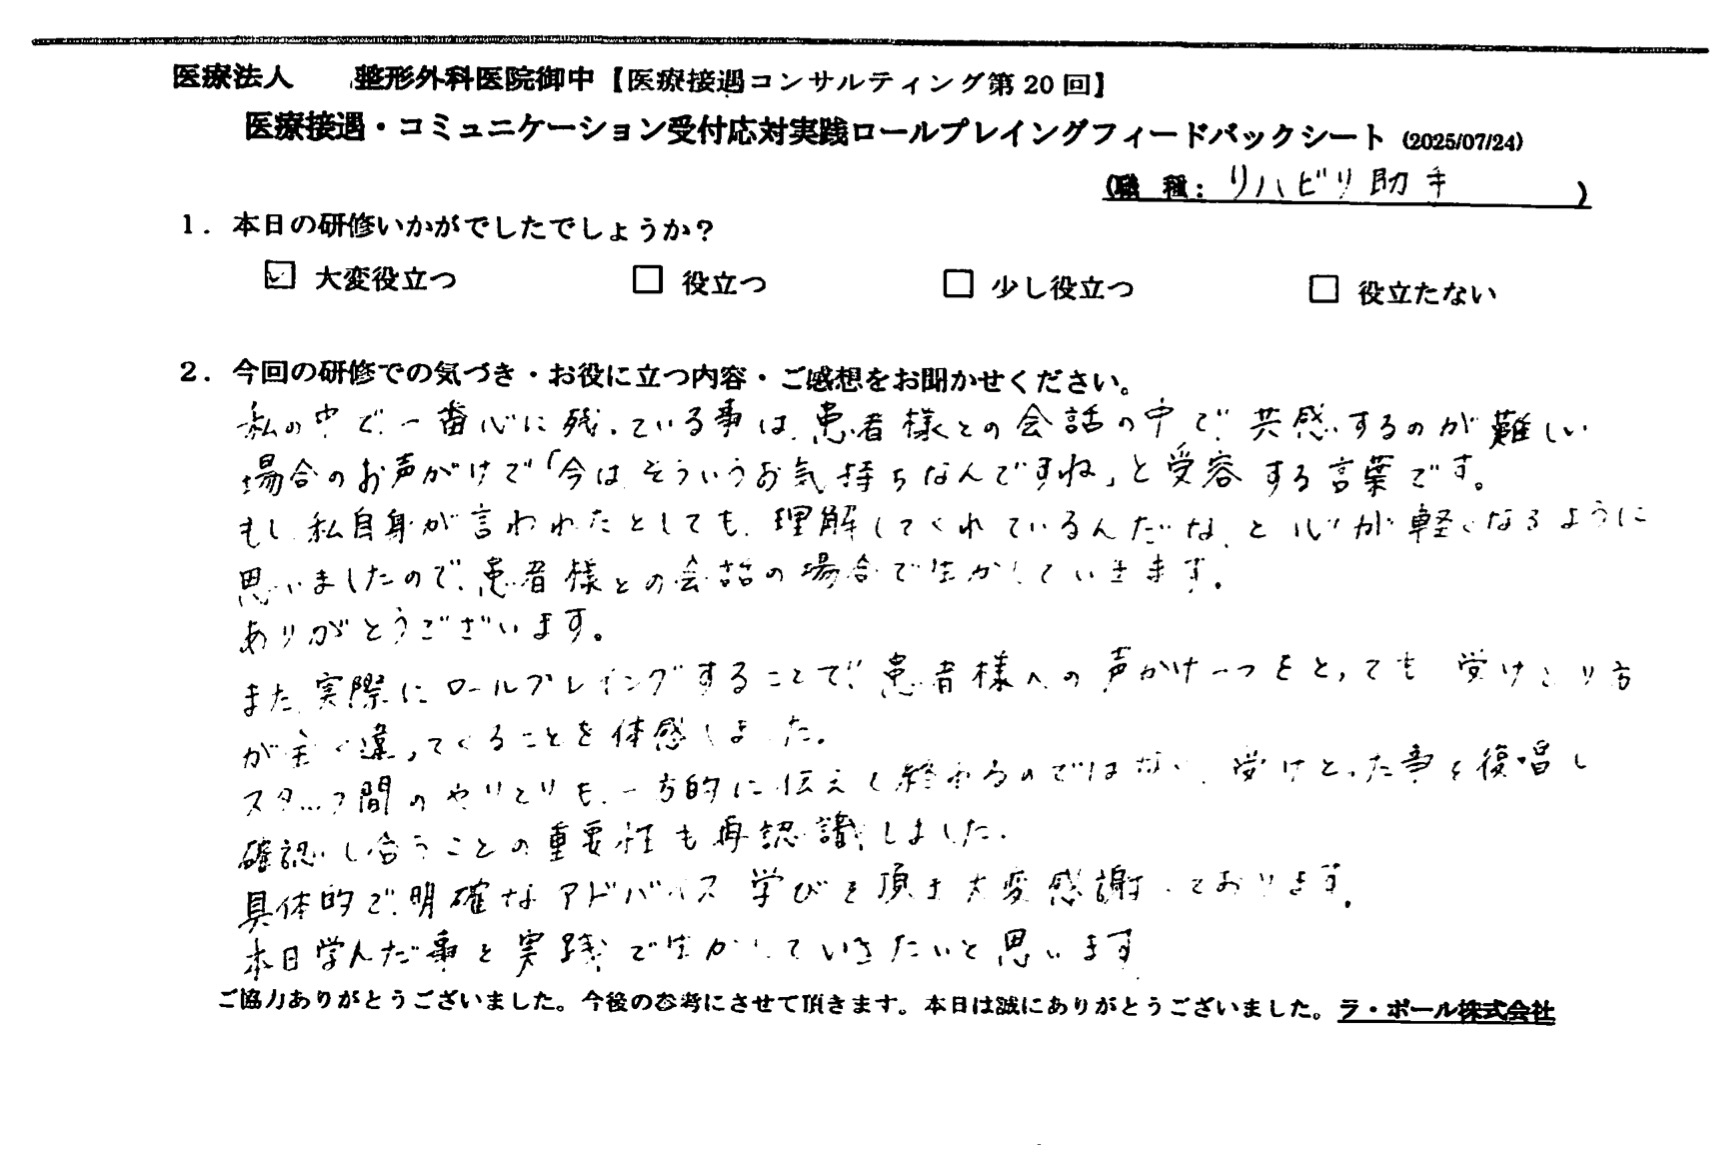 医療法人　　整形外科医院御中【医療接遇コンサルティング第20回】
医療接遇・コミュニケーション受付応対実践ロールプレイングフィードバックシート (2025/07/24)
(職 種: リハビリ助手 )
1. 本日の研修いかがでしたでしょうか?
☑ 大変役立つ □ 役立つ □ 少し役立つ □ 役立たない
2. 今回の研修での気づき・お役に立つ内容・ご感想をお聞かせください。
私の中で一番心に残っている事は、患者様との会話の中で共感するのが難しい
場合のお声がけで「今は、そういうお気持ちなんですね」と受容する言葉です。
もし、私自身が言われたとしても、理解してくれているんだな、と心が軽くなるように
思いましたので、患者様との会話の場合で生かしていきます。
ありがとうございます。
また、実際にロールプレイングすることで、患者様への声かけ一つをとっても受けとり方
が全く違ってくることを体感しました。
スタッフ間のやりとりも、一方的に伝えて終わるのではない、受けとった事を復唱し
確認し合うことの重要性も再認識しました。
具体的で、明確なアドバイス学びを頂き大変感謝しております。
本日学んだ事を実践で生かしていきたいと思います
ご協力ありがとうございました。今後の参考にさせて頂きます。本日は誠にありがとうございました。ラ・ポール株式会社